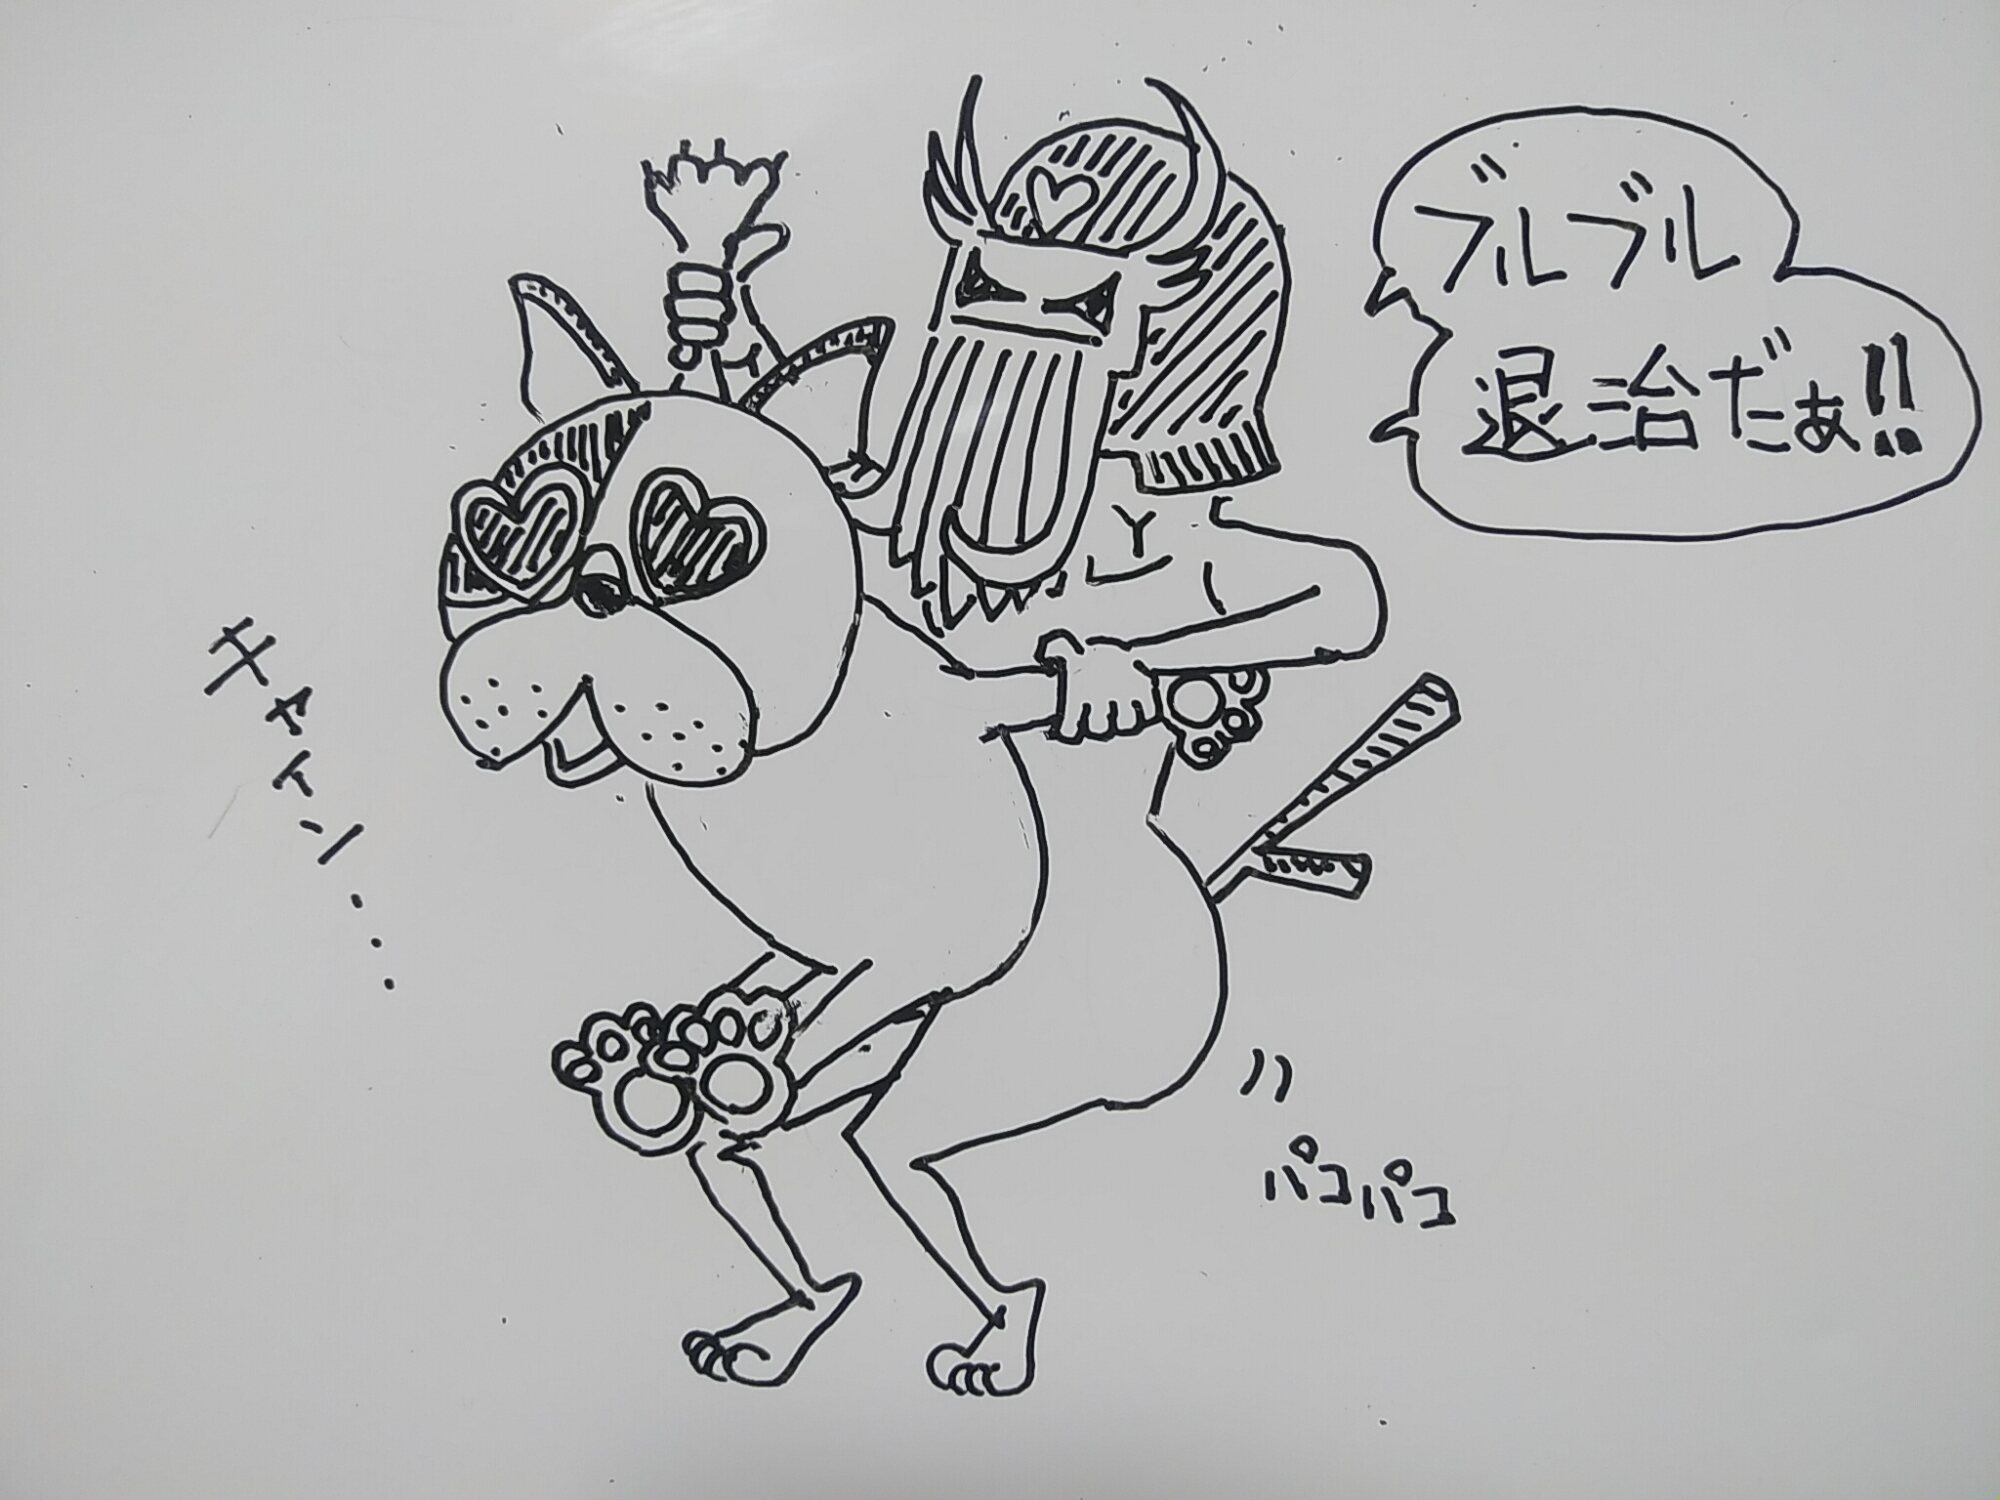 ブルブル
退治だぁ!!
キャイン...
パコパコ